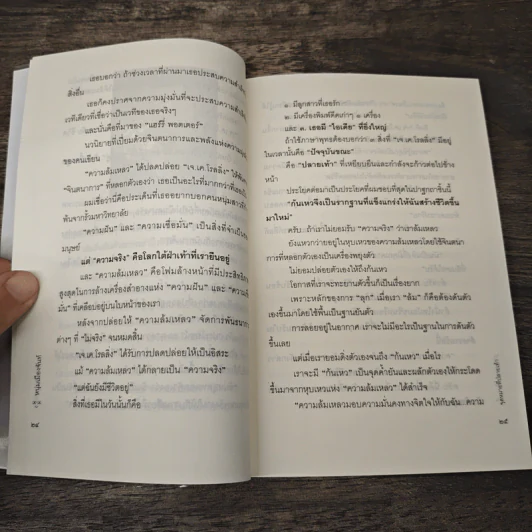 เธอบอกว่า ถ้าช่วงเวลาที่ผ่านมาเธอประสบความสำเร็จ
สิ่งอื่น
เธอก็คงปราศจากความมุ่งมั่นที่จะประสบความสำเร็จ
เวทีเดียวที่เชื่อว่าเป็นเวทีของเธอจริงๆ
และนั่นคือที่มาของ "แฮร์รี่ พอตเตอร์"
นวนิยายที่เปี่ยมด้วยจินตนาการและพลังแห่งความ
ของคนเขียน
"ความล้มเหลว" ได้ปลดปล่อย "เจ.เค.โรลลิ่ง" ให้พ้น
"จินตนาการ" ที่หลอกตัวเองว่า เธอเป็นอะไรที่มากกว่าที่
ผมเชื่อว่านี่คือประเด็นที่เธออยากบอกคนหนุ่มสาวที่
พ้นจากรั้วมหาวิทยาลัย
"ความฝัน" และ "ความเชื่อมั่น" เป็นสิ่งที่จำเป็นของ
มนุษย์
แต่ "ความจริง" คือโลกใต้ฝ่าเท้าที่เรายืนอยู่
และ "ความล้มเหลว" คือโฟมล้างหน้าที่มีประสิทธิภาพ
สูงสุดในการล้างเครื่องสำอางแห่ง "ความฝัน" และ "ความ
มั่น" ที่เคลือบอยู่บนใบหน้าของเรา
หลังจากปล่อยให้ "ความล้มเหลว" จัดการพันธนาการ
ต่างๆ ที่ "ไม่จริง" จนหมดสิ้น
"เจ.เค.โรลลิ่ง" ได้รับการปลดปล่อยให้เป็นอิสระ
แม้ "ความล้มเหลว" ได้กลายเป็น "ความจริง"
"แต่ฉันยังมีชีวิตอยู่"
สิ่งที่เธอมีในวันนั้นก็คือ
หนุ่มเมืองจันท์
๒๔
๑. มีลูกสาวที่เธอรัก
๒. มีเครื่องพิมพ์ดีดเก่าๆ ๑ เครื่อง
และ ๓. เธอมี "ไอเดีย" ที่ยิ่งใหญ่
ถ้าใช้ภาษาพุทธต้องบอกว่า ๓ สิ่งที่ "เจ.เค.โรลลิ่ง" มีอยู่
ในเวลานั้นคือ "ปัจจุบันขณะ"
คือ "ปลายเท้า" ที่เหยียบยืนและกำลังจะก้าวต่อไปข้าง
หน้า
ประโยคต่อมาเป็นประโยคที่ผมชอบที่สุดในปาฐกถาชิ้นนี้
"ก้นเหวจึงเป็นรากฐานที่แข็งแกร่งให้ฉันสร้างชีวิตขึ้น
มาใหม่"
ครับ ถ้าเราไม่ยอมรับ "ความจริง" ว่าเราล้มเหลว
ยังแหวกว่ายอยู่ในหุบเหวของความล้มเหลวโดยใช้จินตนา
การที่หลอกตัวเองเป็นเครื่องพยุงตัว
ไม่ยอมปล่อยตัวเองให้ถึงก้นเหว
โอกาสที่เราจะทะยานตัวขึ้นก็เป็นเรื่องยาก
เพราะหลักการของ "ลุก" เมื่อเรา "ล้ม" ก็คือต้องดันตัว
เองขึ้นมาโดยใช้พื้นเป็นฐานยันตัว
การล่องลอยอยู่ในอากาศ เราจะไม่มีอะไรเป็นฐานในการดันตัว
ขึ้นเลย
แต่เมื่อเรายอมดิ่งตัวเองจนถึง "ก้นเหว" เมื่อไร
เราจะมี "ก้นเหว" เป็นจุดค้ำยันและผลักตัวเองให้กระโดด
ขึ้นมาจากหุบเหวแห่ง "ความล้มเหลว" ได้สำเร็จ
"ความล้มเหลวมอบความมั่นคงทางจิตใจให้กับฉัน ความ
๒๕